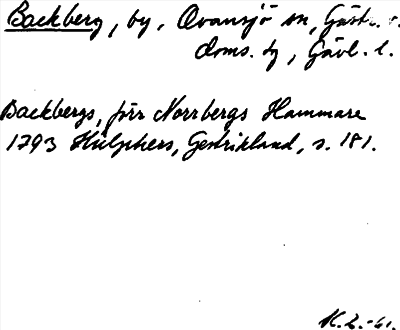 Backberg, by, Ovansjö sn, Gästr. ö.
doms. tg, Gävl. l.
Backbergs, förr Norrbergs Hammare
1793 Hülphers, Gestrikland, s. 181.
K.L.-61.